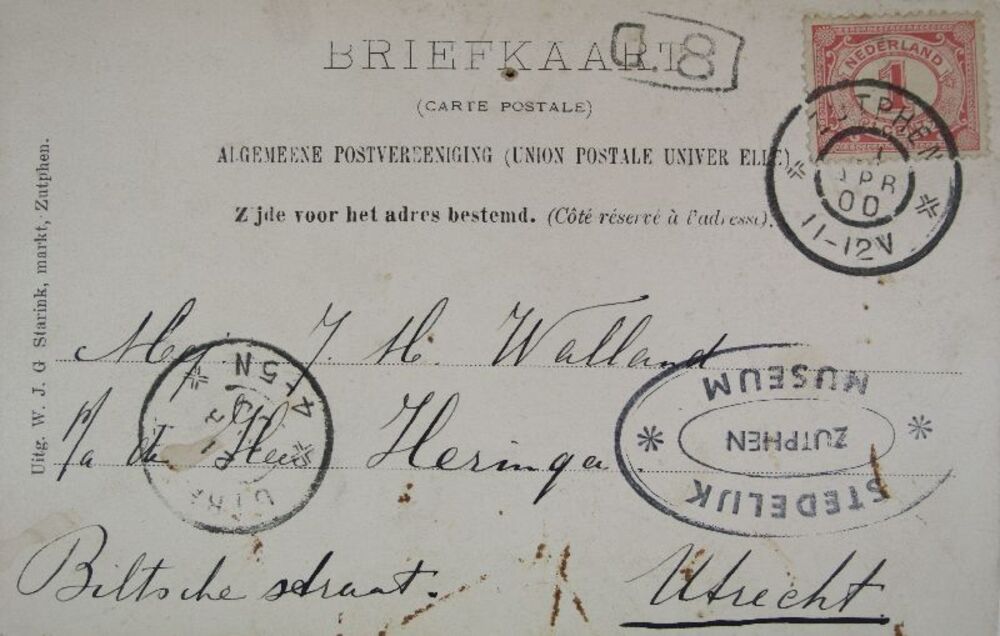 BRIEFKAART
G. 8
(CARTE POSTALE)
ALGEMEENE POSTVEREENIGING (UNION POSTALE UNIVER ELLE)
Zijde voor het adres bestemd. (Côté réservé à l'adresse).
NEDERLAND
1
ZUTPHEN
APR
00
11-12V
Uitg. W. J. G Starink, markt, Zutphen.
Mej. J. H. Walland
p/a den Heer Heringa
Biltsche straat.
Utrecht.
4-5N
UTRE
STEDELIJK
MUSEUM
ZUTPHEN